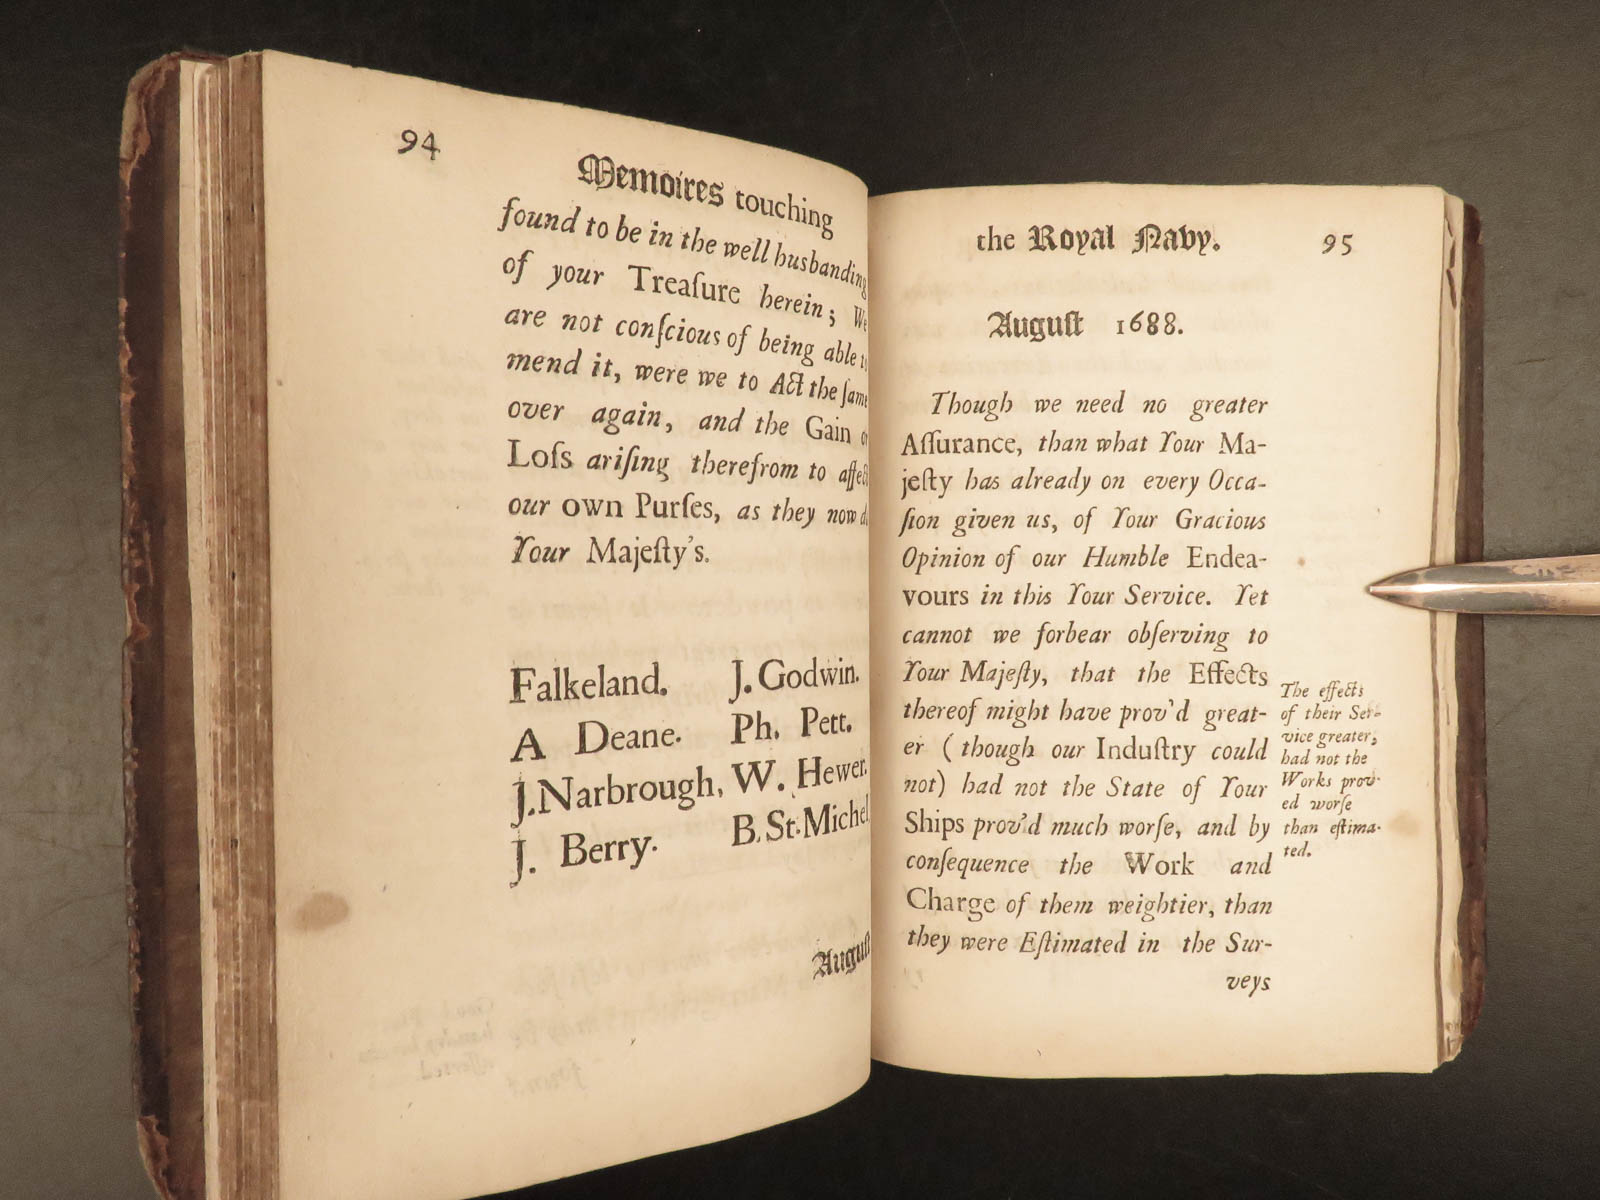 94
Memoires touching
found to be in the well husbanding
of your Treaſure herein; We
are not conſcious of being able to
mend it, were we to Act the ſame
over again, and the Gain or
Loſs ariſing therefrom to affect
our own Purſes, as they now do
Your Majeſty's.
Falkeland. J. Godwin.
A Deane. Ph. Pett.
J. Narbrough, W. Hewer.
J. Berry. B. St. Michel
Auguſt
the Royal Navy. 95
Auguſt 1688.
Though we need no greater
Aſſurance, than what Your Ma-
jeſty has already on every Occa-
ſion given us, of Your Gracious
Opinion of our Humble Endea-
vours in this Your Service. Yet
cannot we forbear obſerving to
Your Majeſty, that the Effects
thereof might have prov'd great-
er (though our Induſtry could
not) had not the State of Your
Ships prov'd much worſe, and by
conſequence the Work and
Charge of them weightier, than
they were Eſtimated in the Sur-
veys
The effects
of their Ser-
vice greater,
had not the
Works prov-
ed worſe
than eſtima-
ted.